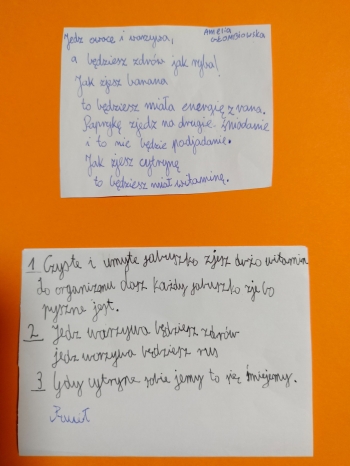 Jedz owoce i warzywa,
Amelia
a będziesz zdrów jak ryba!
Jak zjesz banana
to będziesz miała energię z rana.
Paprykę zjedz na drugie śniadanie
i to nie będzie podjadanie.
Jak zjesz cytrynę
to będziesz miał witaminę.
1 Czyste i umyte jabuszko zjesz dużo witamin
do organizmu dasz każdy jabuszko zje bo
pyszne jest.
2 Jedz warzywa będziesz zdrów
jedz warzywa będziesz rus
3 Gdy cytryne sobie jemy to się śmiejemy.